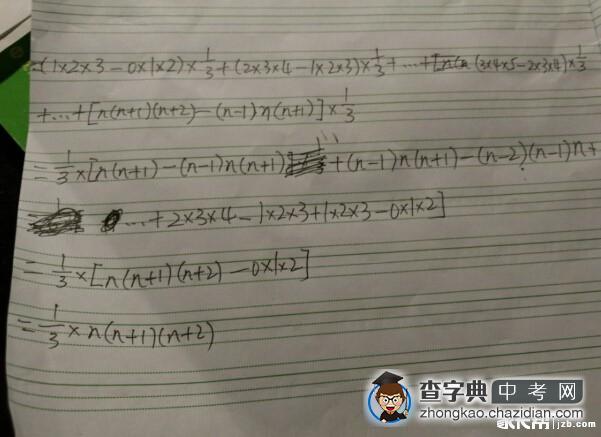 =(1×2×3-0×1×2)×1/3+(2×3×4-1×2×3)×1/3+…+(3×4×5-2×3×4)×1/3
+…+[n(n+1)(n+2)-(n-1)n(n+1)]×1/3
=1/3×[n(n+1)-(n-1)n(n+1)+(n-1)n(n+1)-(n-2)(n-1)n+
…+2×3×4-1×2×3+1×2×3-0×1×2]
=1/3×[n(n+1)(n+2)-0×1×2]
=1/3×n(n+1)(n+2)
查字典 中考网
zhongkao.chazidian.com
jzb.com